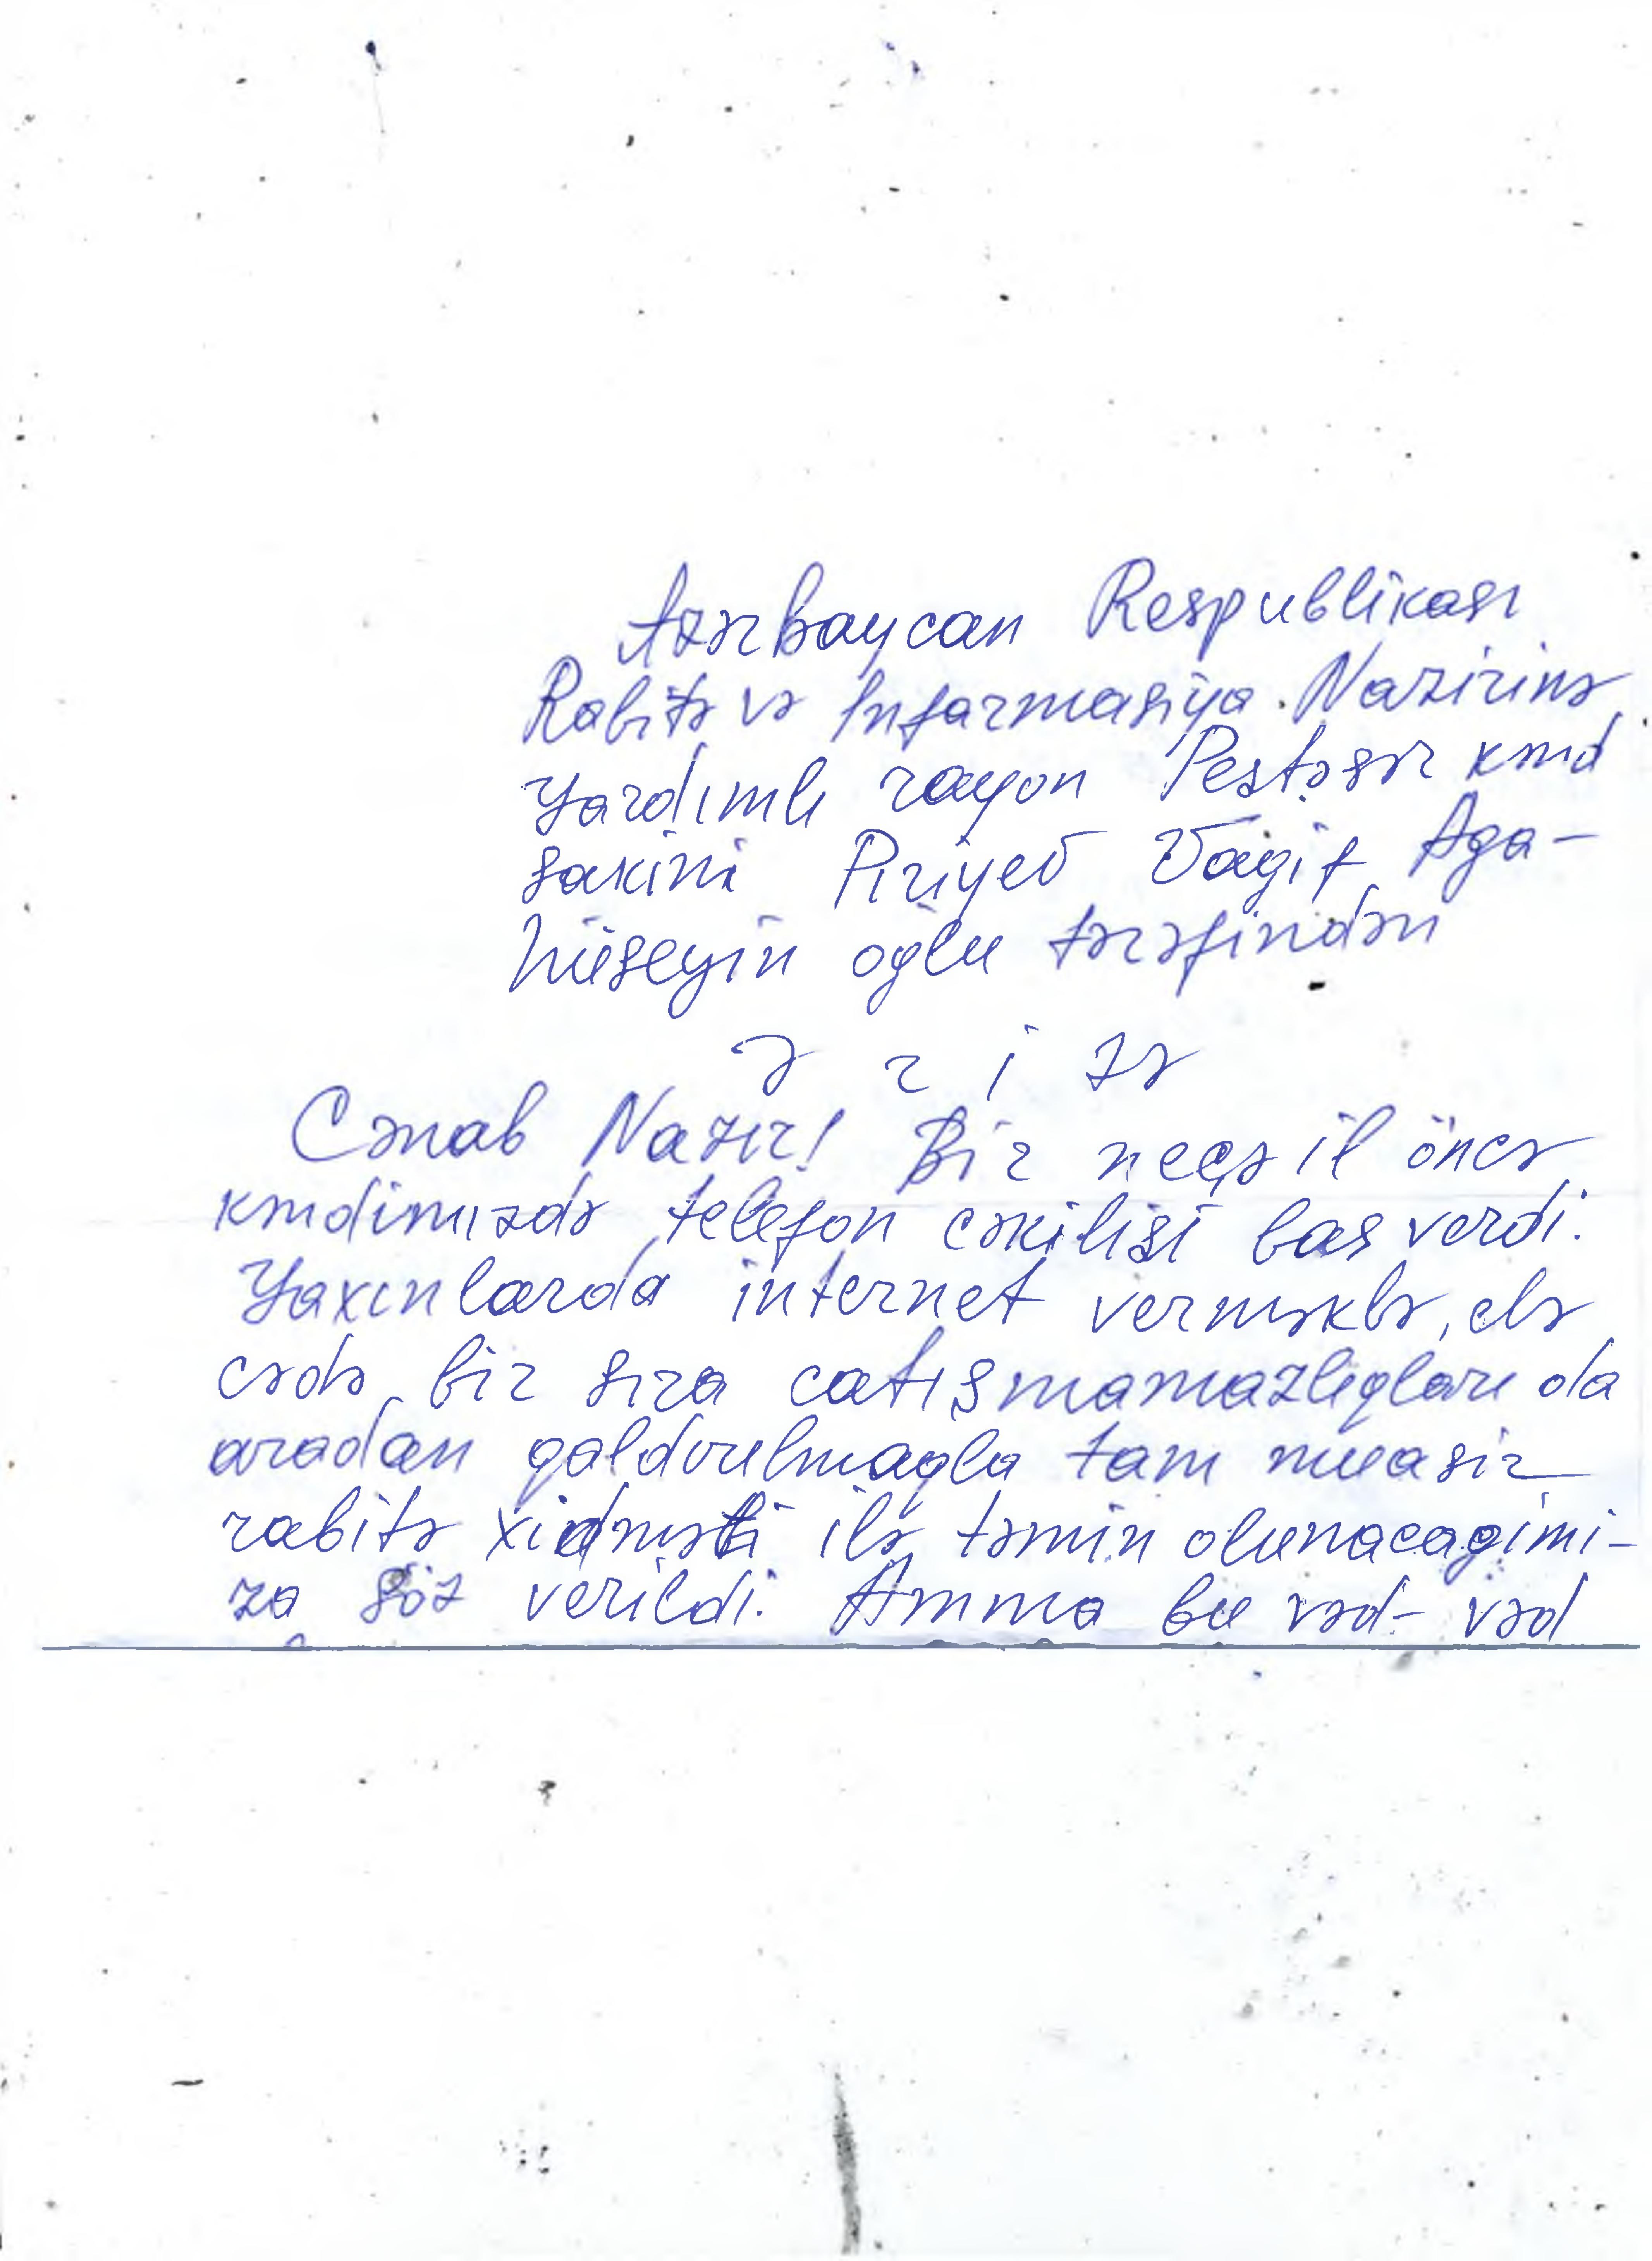 Azərbaycan Respublikası
Rabitə və Infarmasiya Nazirinə
Yardımlı rayon Peştəsər kənd
sakini Piriyev Vagif Aga-
hüseyin oglu tərəfindən
ə r i zə
Cənab Nazır! Bir neçə il öncə
kəndimizdə telefon cəkilişi bas verdi.
Yaxınlarda internet verməklə, elə
cədə bir sıra catışmamazlıqları da
aradan qaldırılmaqla tam muasir
rabitə xidməti ilə təmin olunacagimi-
za söz verildi. Amma bu vəd- vəd